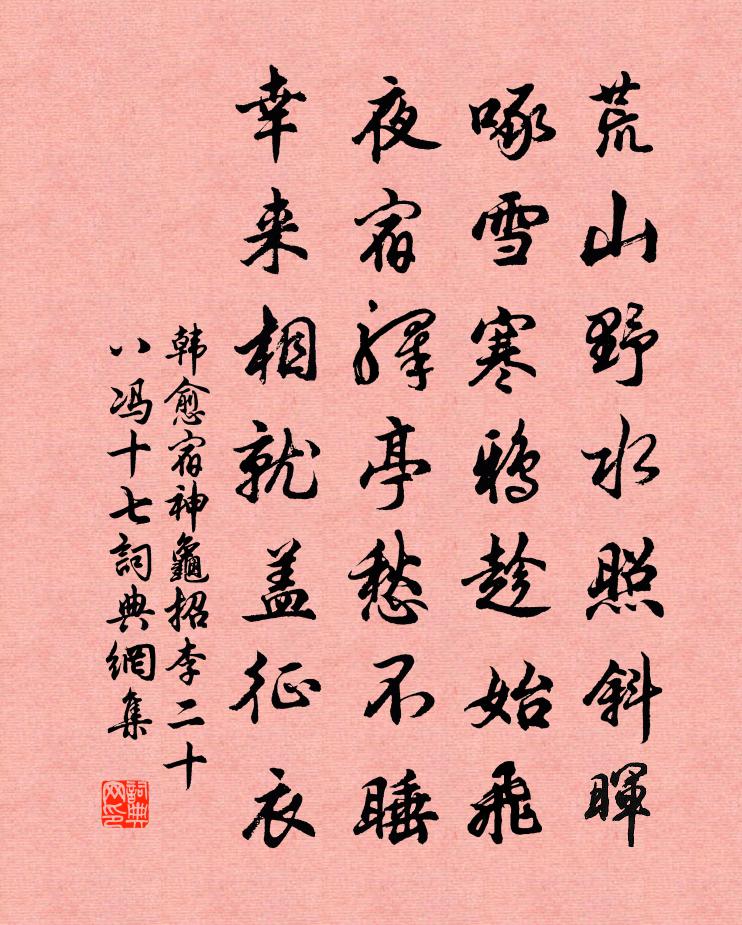 荒山野水照斜暉
啄雪寒鴉趁始飛
夜宿驛亭愁不睡
幸来相就盖征衣
韩愈宿神龜招李二十
八冯十七詞典網集
詞典网印